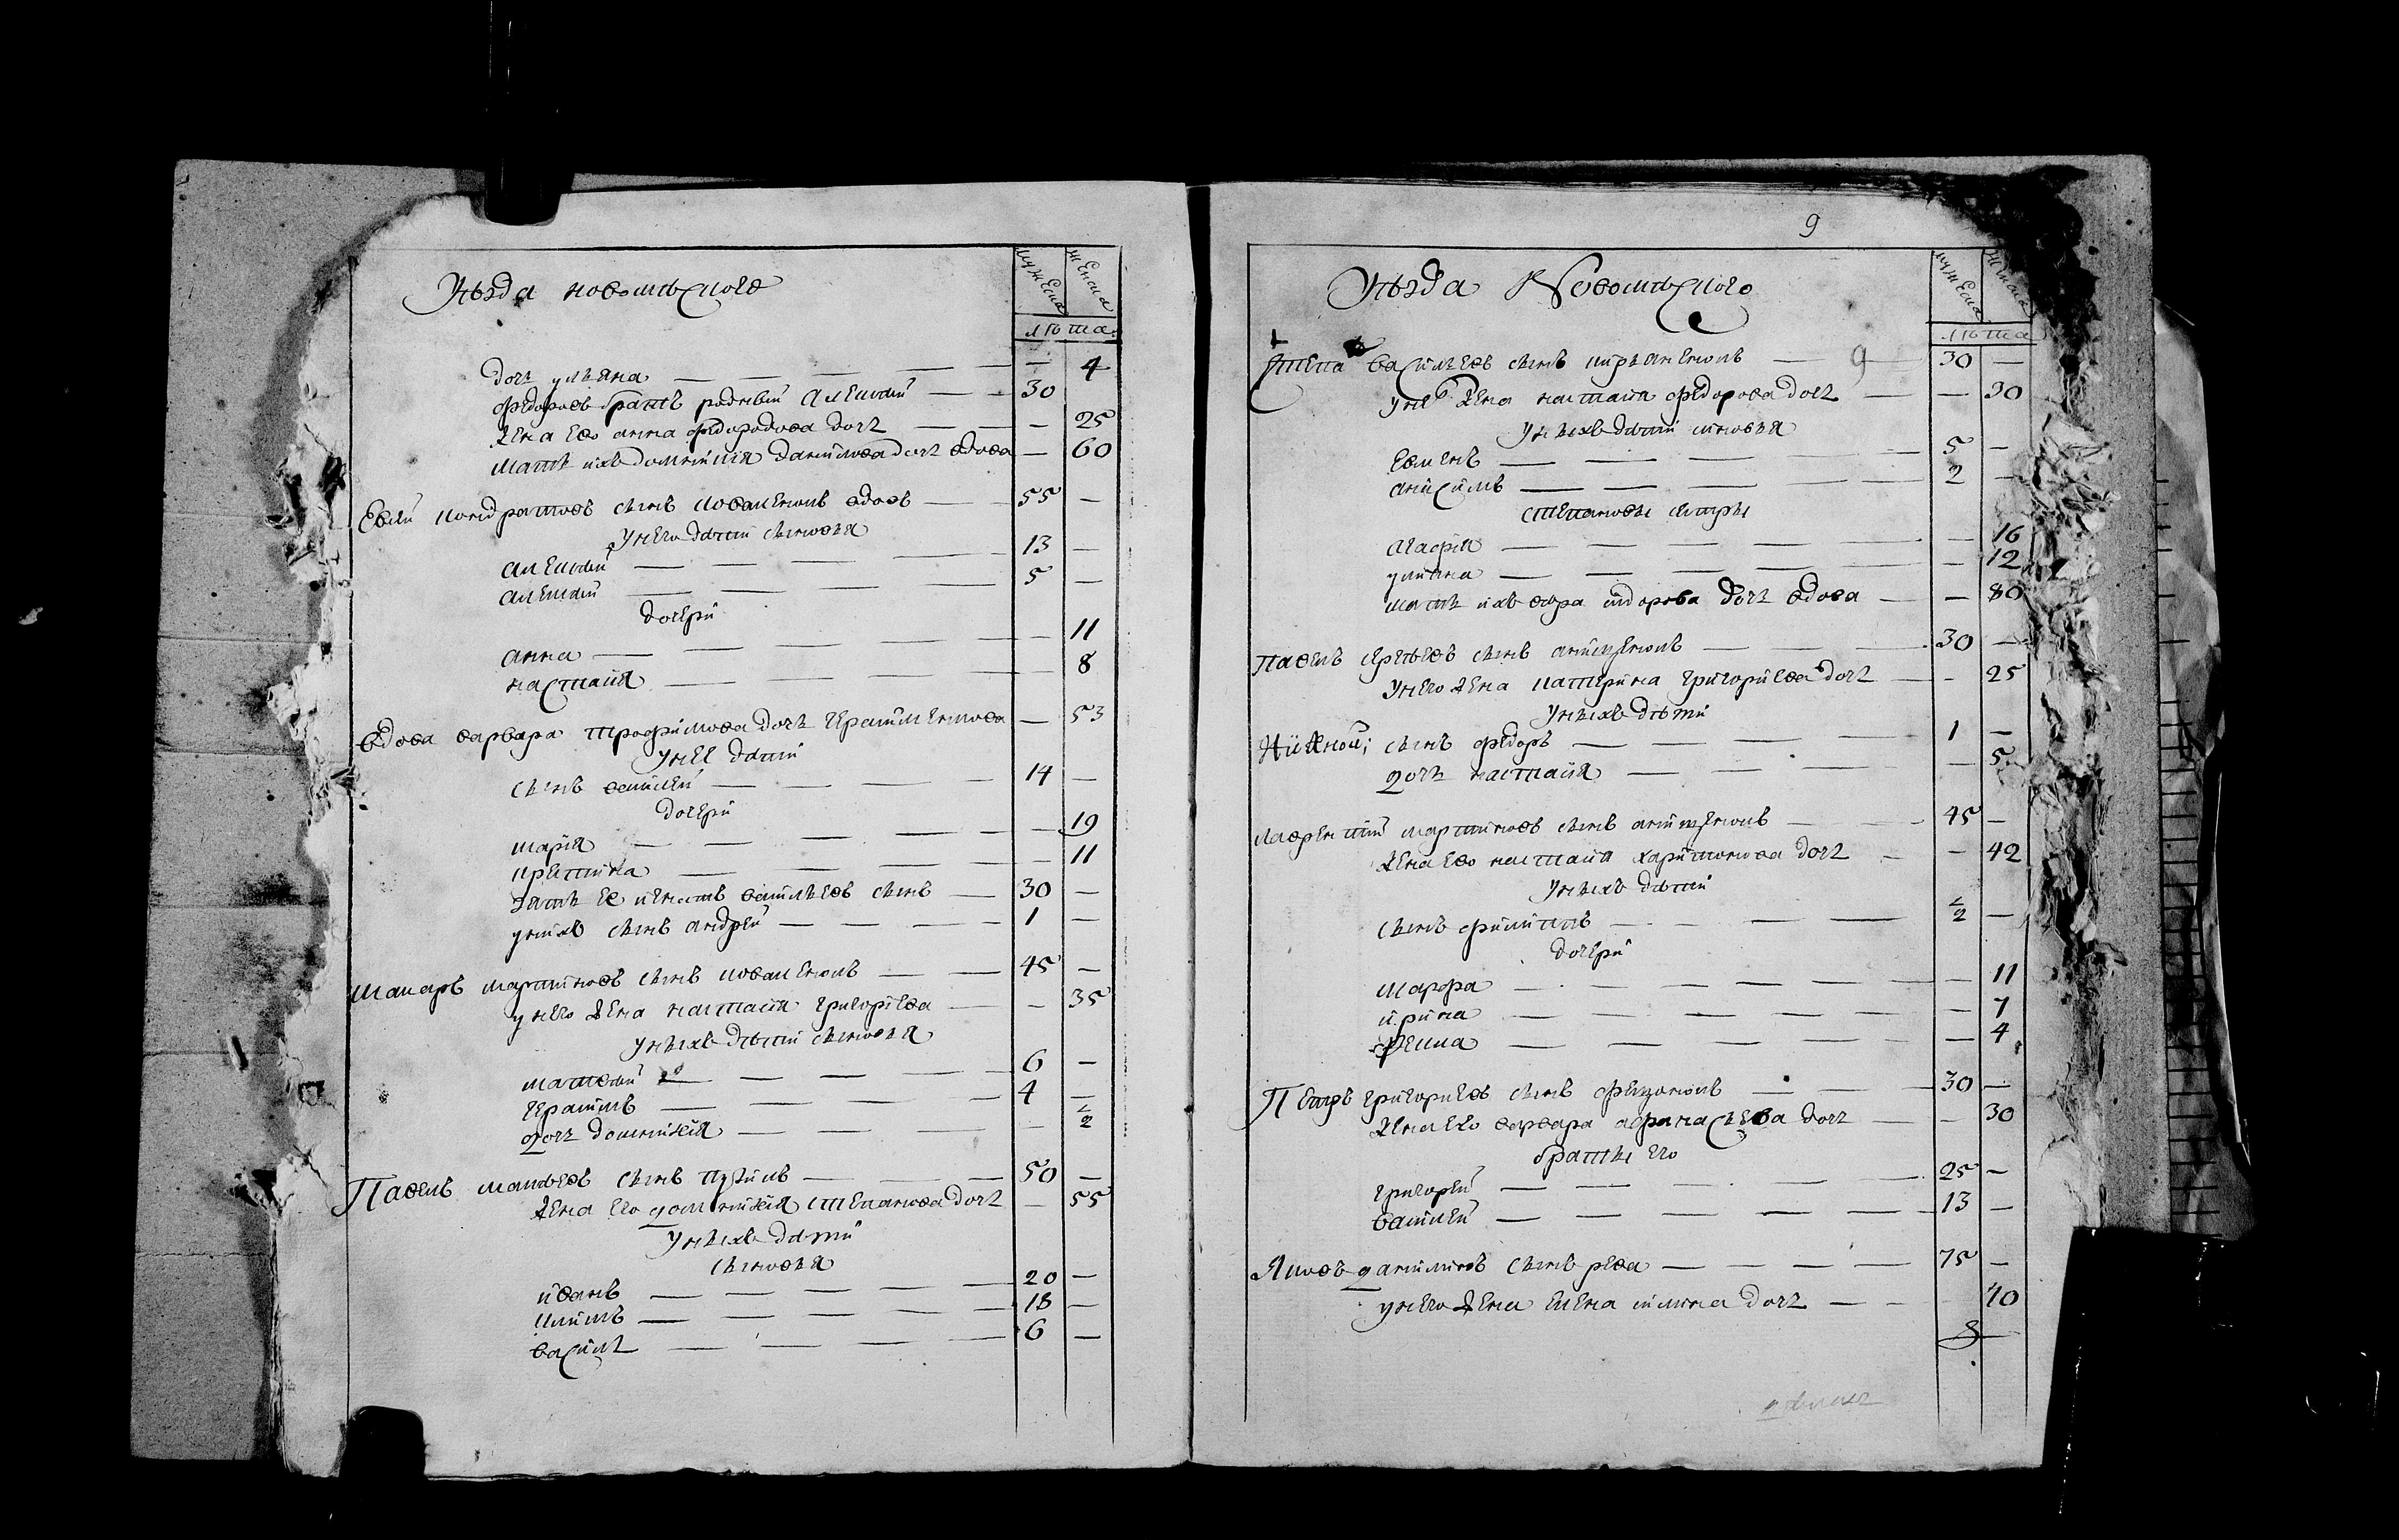 Уѣзда новомлѣского
мужеска
женска
лѣта
дочь ульяна — 4
федоровъ братъ родный алексѣй 30 —
жена ево анна федородова дочь — 25
мать ихъ домникия данилова дочь вдова — 60
Евсѣй кондратовъ сынъ коваленокъ вдовъ 55 —
У него дѣти сыновья
алексѣй 13 —
алексѣй 5 —
дочери
анна — 11
настасия — 8
вдова варвара трофимова дочь герасименкова — 53
У нее дѣти
сынъ василей 14 —
дочери
мария — 19
кристина — 11
зять ее игнатъ васильевъ сынъ 30 —
у нихъ сынъ андрей 1 —
макаръ мартиновъ сынъ коваленокъ 45 —
у него жена настасия григориева — 35
У ныхъ дѣти сыновья
матвѣй 6 —
герасимъ 4 —
дочь домникия — 1/2
Павелъ матвѣевъ сынъ пузикъ 50 —
жена его домникия степанова дочь — 55
У ныхъ дѣти
сыновья
иванъ 20 —
климъ 18 —
василь 6 —
9
Уѣзда Новомлѣского
мужеска
женска
лѣта
9
степа василевъ сынъ кирьяненокъ 30 —
у нег жена настасия федорова дочь — 30
У ныхъ дѣти синовья
евменъ 5 —
анисимъ 2 —
степановы сестры
агафия — 16
улияна — 12
мать ихъ явдора сидорова дочь вдова — 80
Павелъ сергѣевъ сынъ анищенокъ 30 —
У него жена катерина григориева дочь — 25
У ныхъ дѣти
Нижной: сынъ федоръ 1 —
дочь настасия — 5
Лаврентий мартиновъ сынъ анищенокъ 45 —
жена ево настасия харитонова дочь — 42
У ныхъ дѣти
сынъ филипъ 1/2 —
дочери
марфа — 11
ирина — 7
фекла — 4
Петръ григориевъ сынъ фещонокъ 30 —
жена его варвара афанасьева дочь — 30
братья его
григорей 25 —
василей 13 —
Яковъ данилов сынъ рева 75 —
у него жена елена климова дочь 70